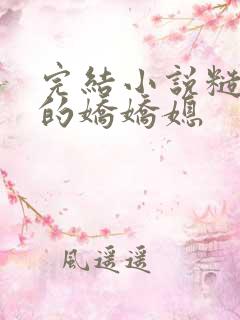 完結小說糙
的嬌嬌媳
風遥遥